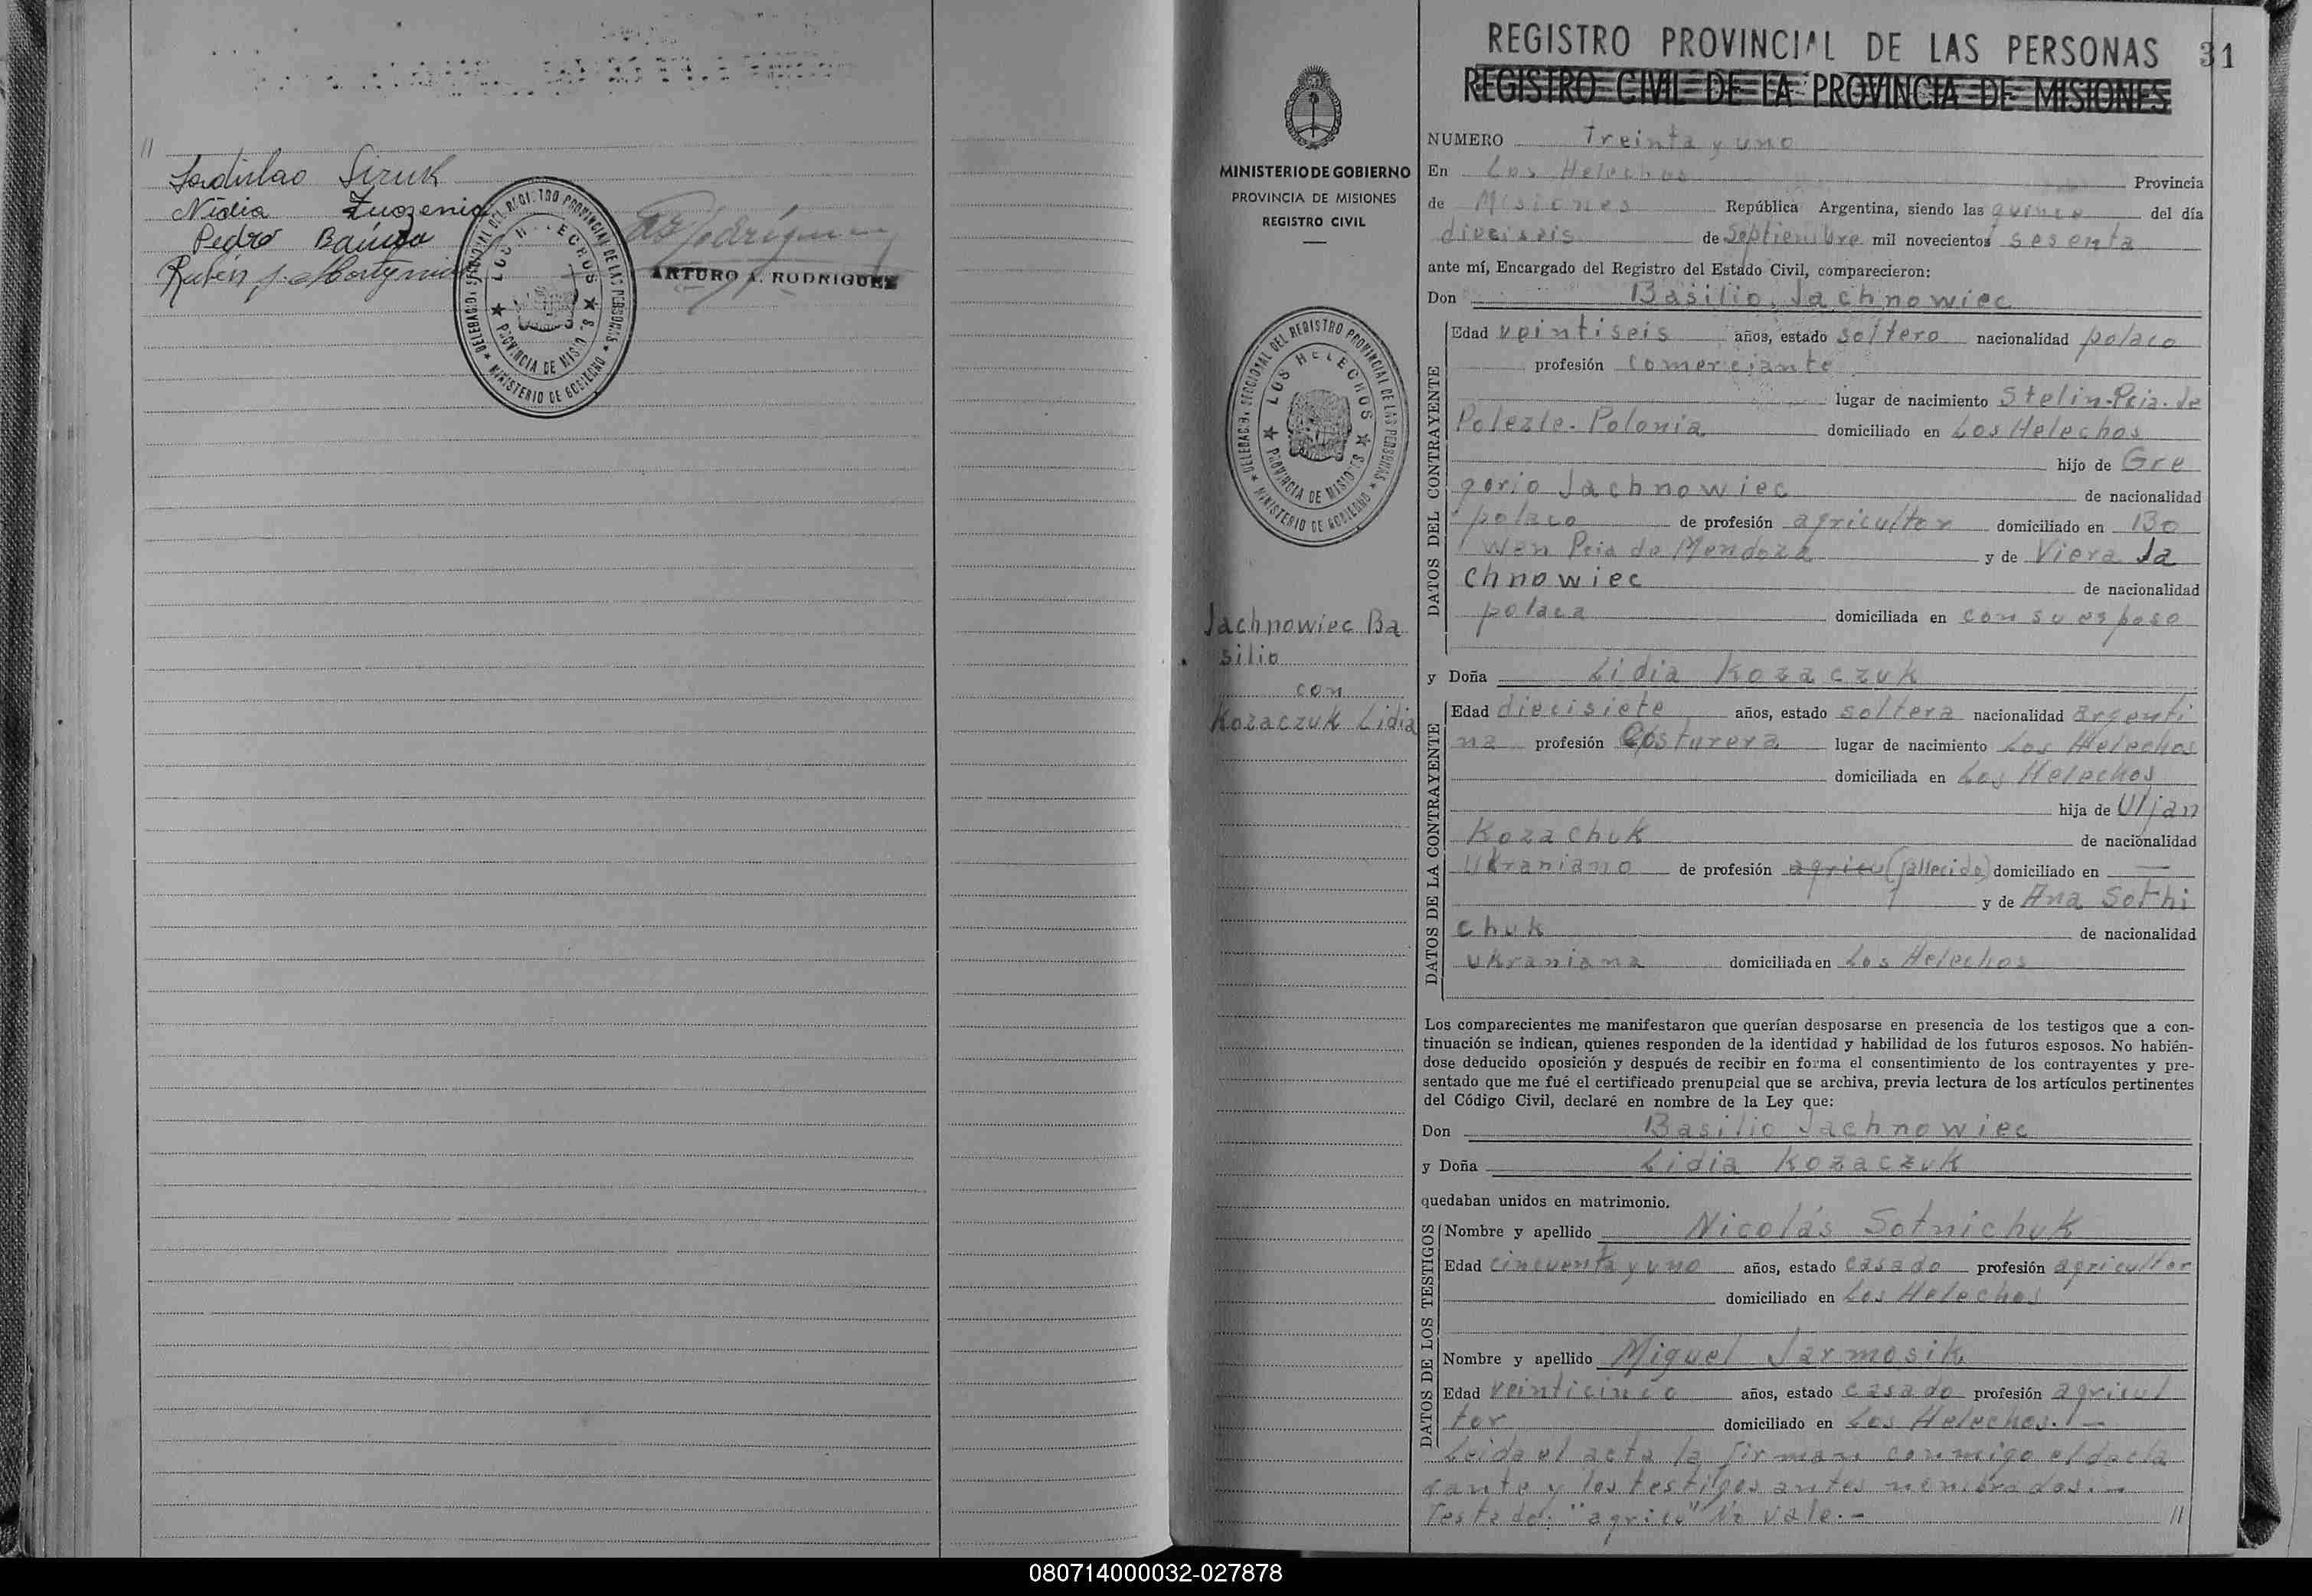 //
Ladislao Siruk
Nidia
Pedro
Rubén J.
DELEGACION SECCIONAL DEL REGISTRO PROVINCIAL DE LAS PERSONAS
LOS HELECHOS
PROVINCIA DE MISIONES
MINISTERIO DE GOBIERNO
ARTURO A. RODRIGUEZ
MINISTERIO DE GOBIERNO
PROVINCIA DE MISIONES
REGISTRO CIVIL
DELEGACION SECCIONAL DEL REGISTRO PROVINCIAL DE LAS PERSONAS
LOS HELECHOS
PROVINCIA DE MISIONES
MINISTERIO DE GOBIERNO
Jachnowiec Ba
silio
con
Kozaczuk Lidia
REGISTRO PROVINCIAL DE LAS PERSONAS 31
REGISTRO CIVIL DE LA PROVINCIA DE MISIONES
NUMERO Treinta y uno
En Los Helechos Provincia
de Misiones República Argentina, siendo las quince del día
dieciseis de Septiembre mil novecientos sesenta
ante mí, Encargado del Registro del Estado Civil, comparecieron:
Don Basilio Jachnowiec
DATOS DEL CONTRAYENTE
Edad veintiseis años, estado soltero nacionalidad polaco
profesión comerciante
lugar de nacimiento Stelin-Pcia. de
Polezle-Polonia domiciliado en Los Helechos
hijo de Gre
gorio Jachnowiec de nacionalidad
polaco de profesión agricultor domiciliado en Bo
wen Pcia de Mendoza y de Viera Ja
chnowiec de nacionalidad
polaca domiciliada en con su esposo
y Doña Lidia Kozaczuk
DATOS DE LA CONTRAYENTE
Edad diecisiete años, estado soltera nacionalidad argenti
na profesión Costurera lugar de nacimiento Los Helechos
domiciliada en Los Helechos
hija de Uljan
Kozachuk de nacionalidad
Ukraniano de profesión agricu (fallecido) domiciliado en —
y de Ana Sothi
chuk de nacionalidad
ukraniana domiciliada en Los Helechos
Los comparecientes me manifestaron que querían desposarse en presencia de los testigos que a con-
tinuación se indican, quienes responden de la identidad y habilidad de los futuros esposos. No habién-
dose deducido oposición y después de recibir en forma el consentimiento de los contrayentes y pre-
sentado que me fué el certificado prenupcial que se archiva, previa lectura de los artículos pertinentes
del Código Civil, declaré en nombre de la Ley que:
Don Basilio Jachnowiec
y Doña Lidia Kozaczuk
quedaban unidos en matrimonio.
DATOS DE LOS TESTIGOS
Nombre y apellido Nicolás Sotnichuk
Edad cincuenta y uno años, estado casado profesión agricultor
domiciliado en Los Helechos
Nombre y apellido Miguel Jarmosik
Edad veinticinco años, estado casado profesión agricul
tor domiciliado en Los Helechos.-
Leida el acta la firman conmigo el decla
rante y los testigos antes nombrados.-
Testado: "agricu" No vale.- //
080714000032-027878